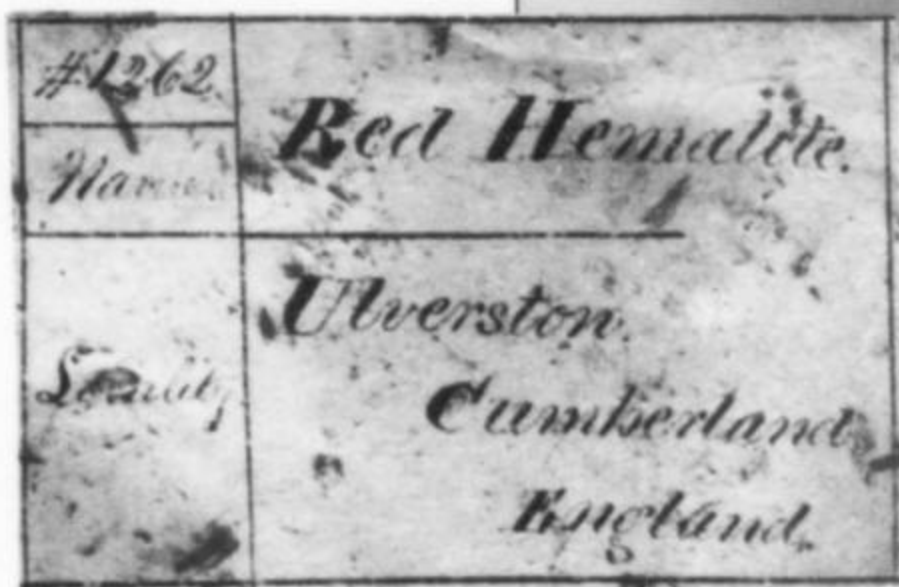 #1262.
Name. Red Hematite.
Locality Ulverston.
Cumberland
England.